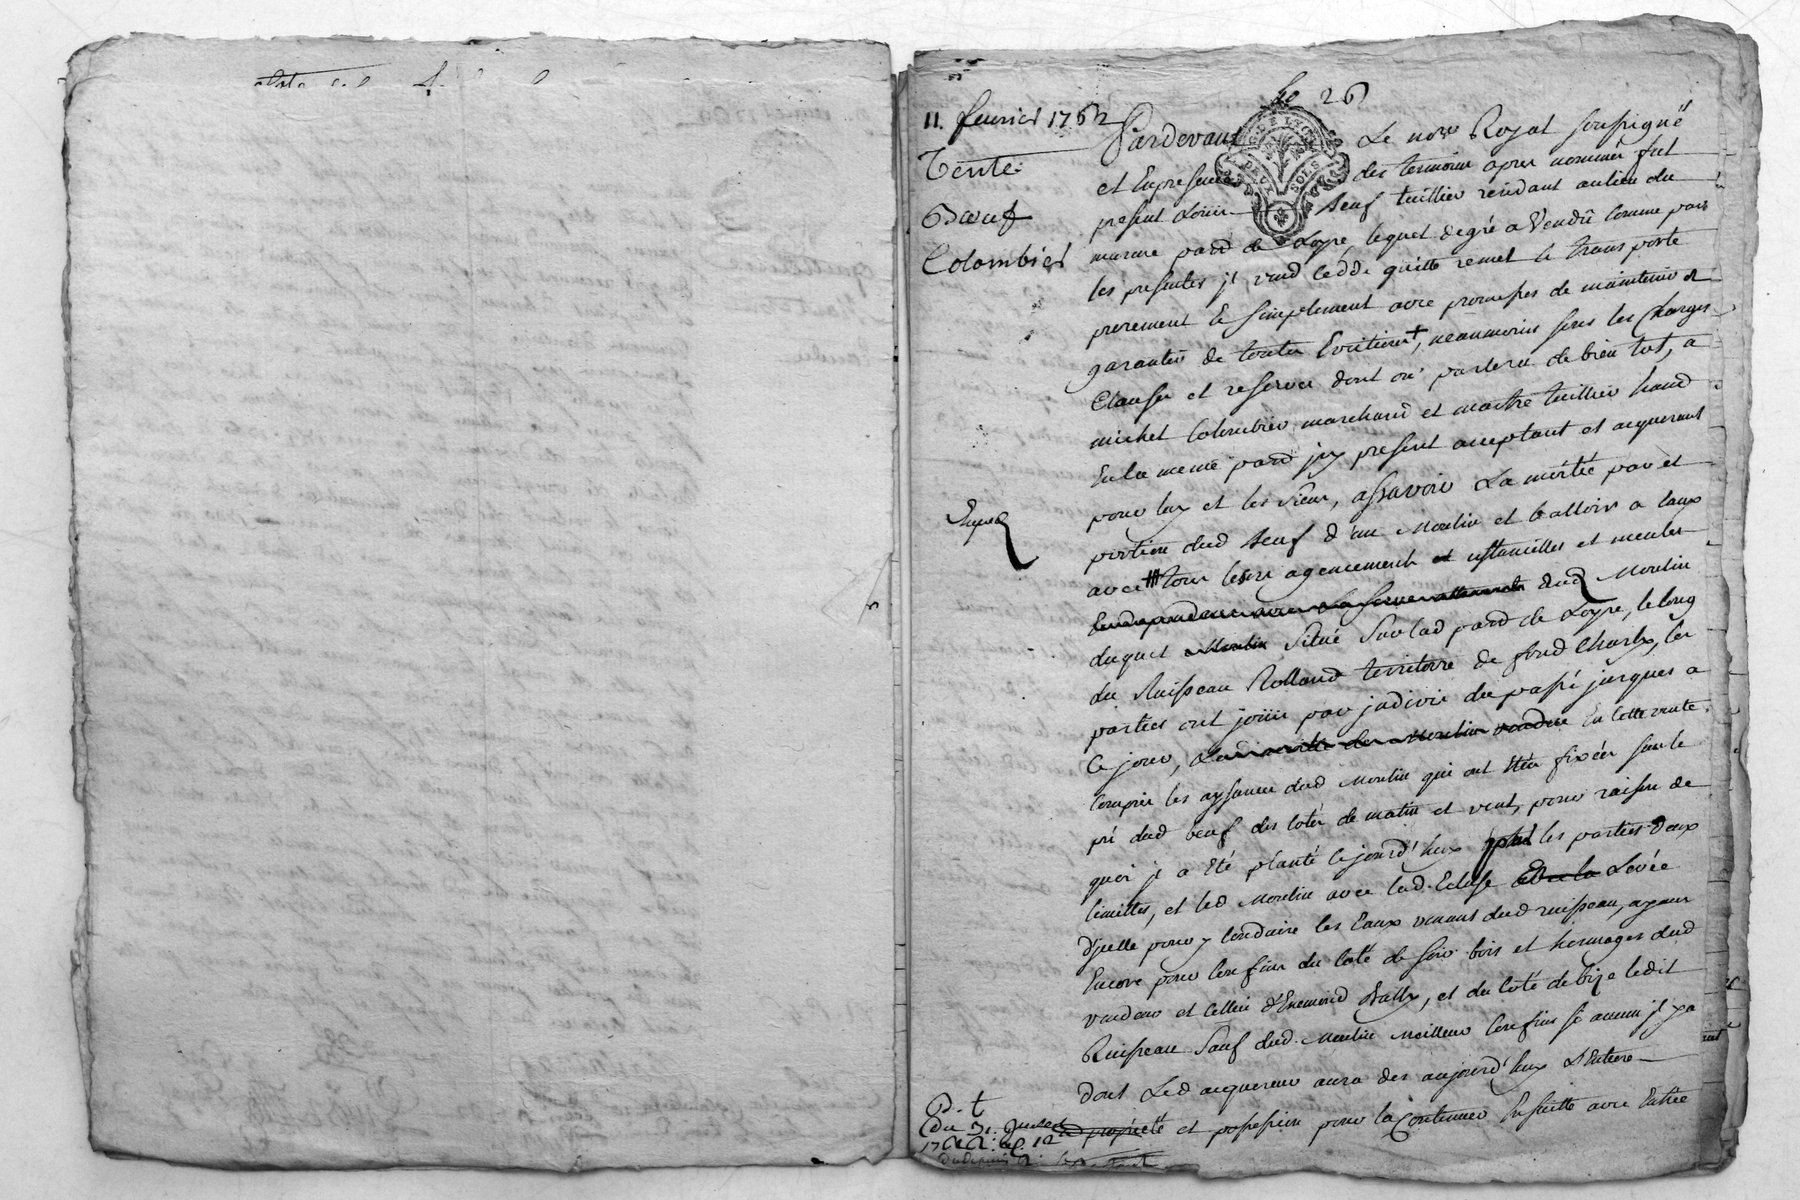 26
11. fevrier 1762
Vente
Bœuf
Colombier
Pardevant Le no.re Royal soussigné
et En presence des temoins apres nommés fut
present Louis Beuf tuillier residant au lieu du
parre de Loyre, lequel de gré a Vendû Comme par
les presentes jl vend cedde quitte remet et transporte
purement et simplement avec promesses de maintenir et
garantir de toutes Evictions, neanmoins sous les Charges
Clauses et reserves dont on parlera de bientot, a
michel Colombier marchand et maitre tuillier
En la meme parr jcy present acceptant et aquerant
pour luy et les siens, assavoir La moitié par et
portion dud Beuf d'un Moulin et battoir a eaux
avec tous leurs agencements et ustancilles et meules
dud Moulin
duquel Moulin situé sur lad parr de Loyre, le long
du Ruisseau Rolland territoire de fond Charlx, les
parties ont joüis par jndivis du passé jusques a
Ce jour, En cette vente
Compris les aysances dud Moulin qui ont étéz fixées sur le
pré dud beuf des cotés de matin et vent, pour raison de
quoi jl a été planté ce jourd'huy par les parties deux
limittes, et led Moulin avec lad. Ecluse et la Levée
d'jcelle pour y Conduire les Eaux venant dud ruisseau, ayant
Encore pour Confins du coté de soir bois et hermages dud
vendeur et celluy d'Enemond Bally, et du coté de bize ledit
Ruisseau Sauf dud. Moulin Meilleurs Confins si aucun jl y a
dont Led aquereur aura des aujourd'huy L'Entiere
propriété et possession pour la Continuer Ensuitte avec Entrée
Du 31. Juillet